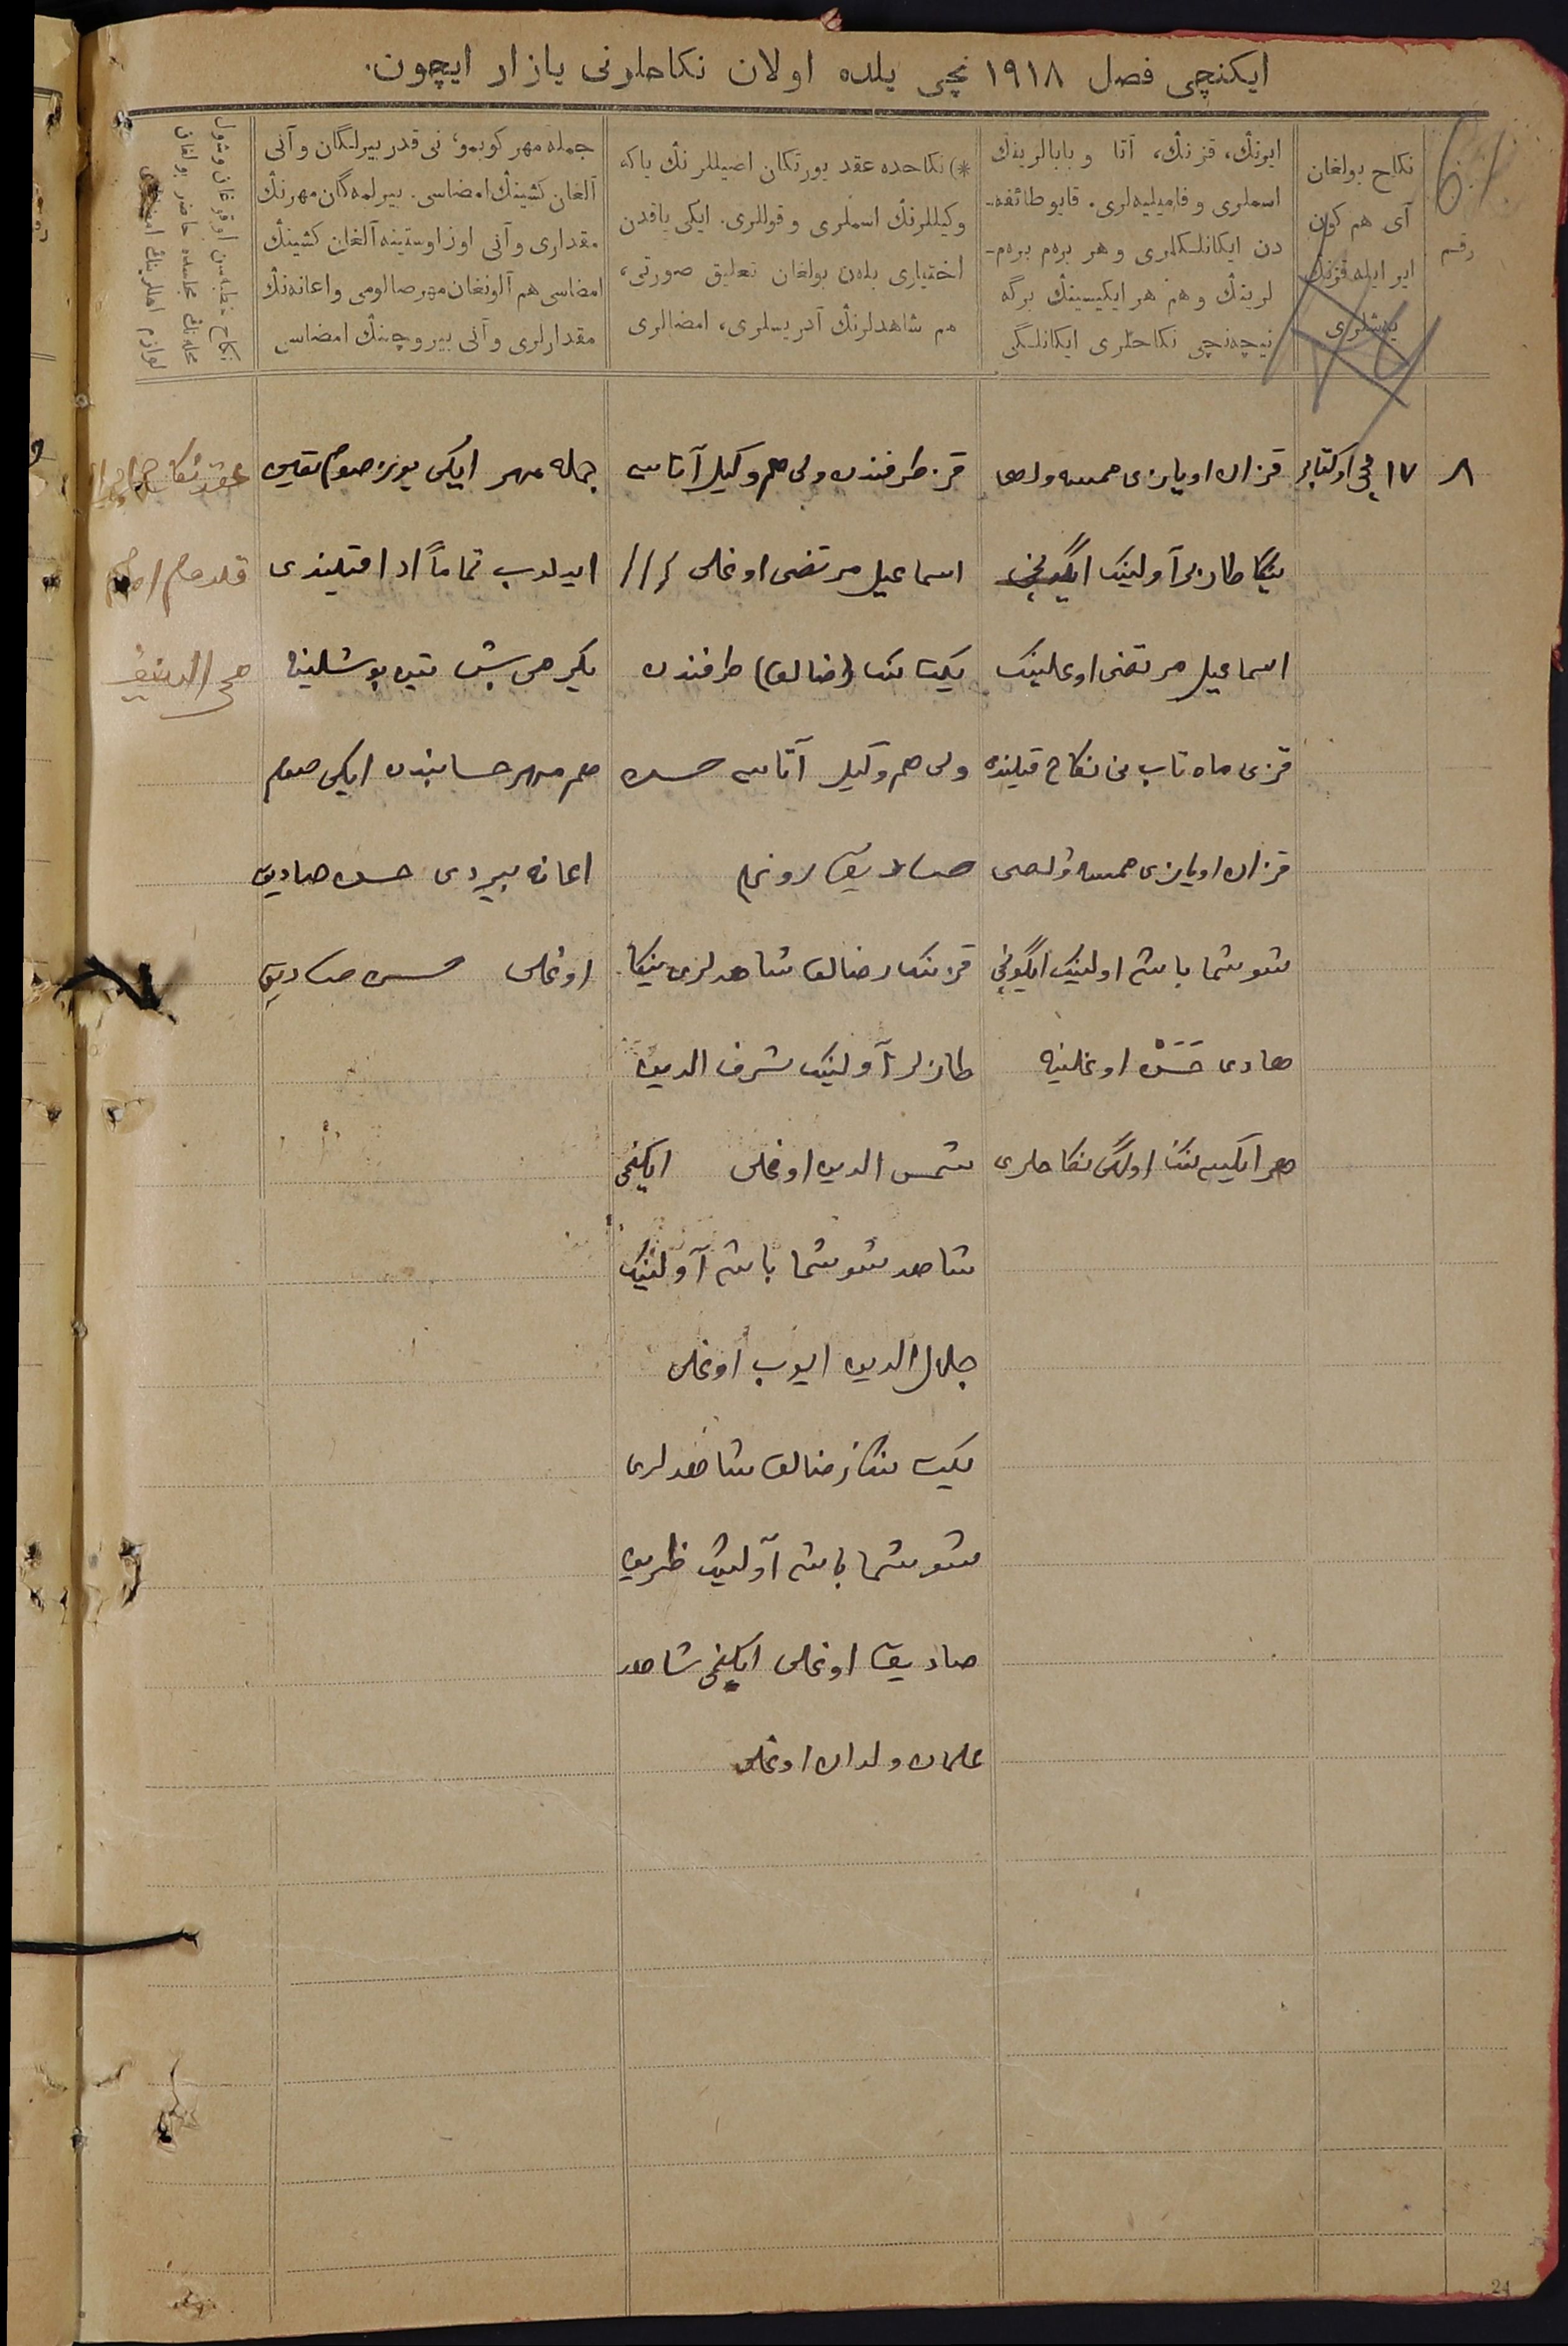 ایكنچی فصل ۱۹۱۸ نچی یلده اولان نكاحلرنی یازار ایچون.
رقم
نكاح بولغان
آی هم كون
ایر ایله قزنڭ
یەشلری
ایرنڭ، قزنڭ، آتا و بابالرینڭ
اسملری و فامیلیه‌لری. قایو طائفه-
دن ایكانلكلری و هر برەم برەم-
لرینڭ و هم هر ایكیسینڭ برگه
نیچه‌نچی نكاحلری ایكانلگی
*) نكاحده عقد یورتكان اصیللرنڭ یا كه
وكیللرنڭ اسملری و قوللری. ایكی یاقدن
اختیاری بله‌ن بولغان تعلیق صورتی،
هم شاهدلرنڭ آدریسلری، امضالری
جمله مهر كوبمو؛ نی قدر بیرلگان و آنی
آلغان كشینڭ امضاسی. بیرلمه‌گان مهرنڭ
مقداری و آنی اوز اوستینه آلغان كشینڭ
امضاسی هم آلونغان مهر صالومی و اعانه‌نڭ
مقدارلری و آنی بیروچینڭ امضاسی
نكاح خطبه‌سن اوقوغان و شول
محله‌نڭ مجلسده حاضر بولغان
لوازم اهللرینڭ
۸
۱۷ نچی اوكتابر
قزان اویازی
ینگا طازلر آولینڭ ایگونچی
اسماعیل مرتضی اوغلینڭ
قزی ماه تاب نی نكاح قیلنده
قزان اویازی
شوشما باش اولینڭ ایگونچی
هادی حَسَنْ اوغلینه
هر ایكیسینڭ اولگی نكاحلری
قز طرفندن ولی هم وكیل آتاسی
اسماعیل مرتضی اوغلی ///
یگیتنڭ (رضالق) طرفندن
ولی هم وكیل آتاسی حسن
صادیق اوغلی
قزنڭ رضالق شاهدلری ینگا
طازلر آولینڭ شرف الدین
شمس الدین اوغلی ایكنچی
شاهد شوشما باش آولینڭ
جلال الدین ایوب اوغلی
یگیتنڭ رضالق شاهدلری
شوشما باش آولینڭ ظریف
صادیق اوغلی ایكنچی شاهد
ولدان اوغلی
جمله مهر ایكی یوز صوم تعیین
ایدلوب تماماً ادا قیلندی
یگرمی بش تین پوشلینه
هم مهر حسابندن ایكی صوم
اعانه بیردی حسن صادیق
اوغلی حسن صادیق
عقد نكاح
قلدم امام
محی الدین
24